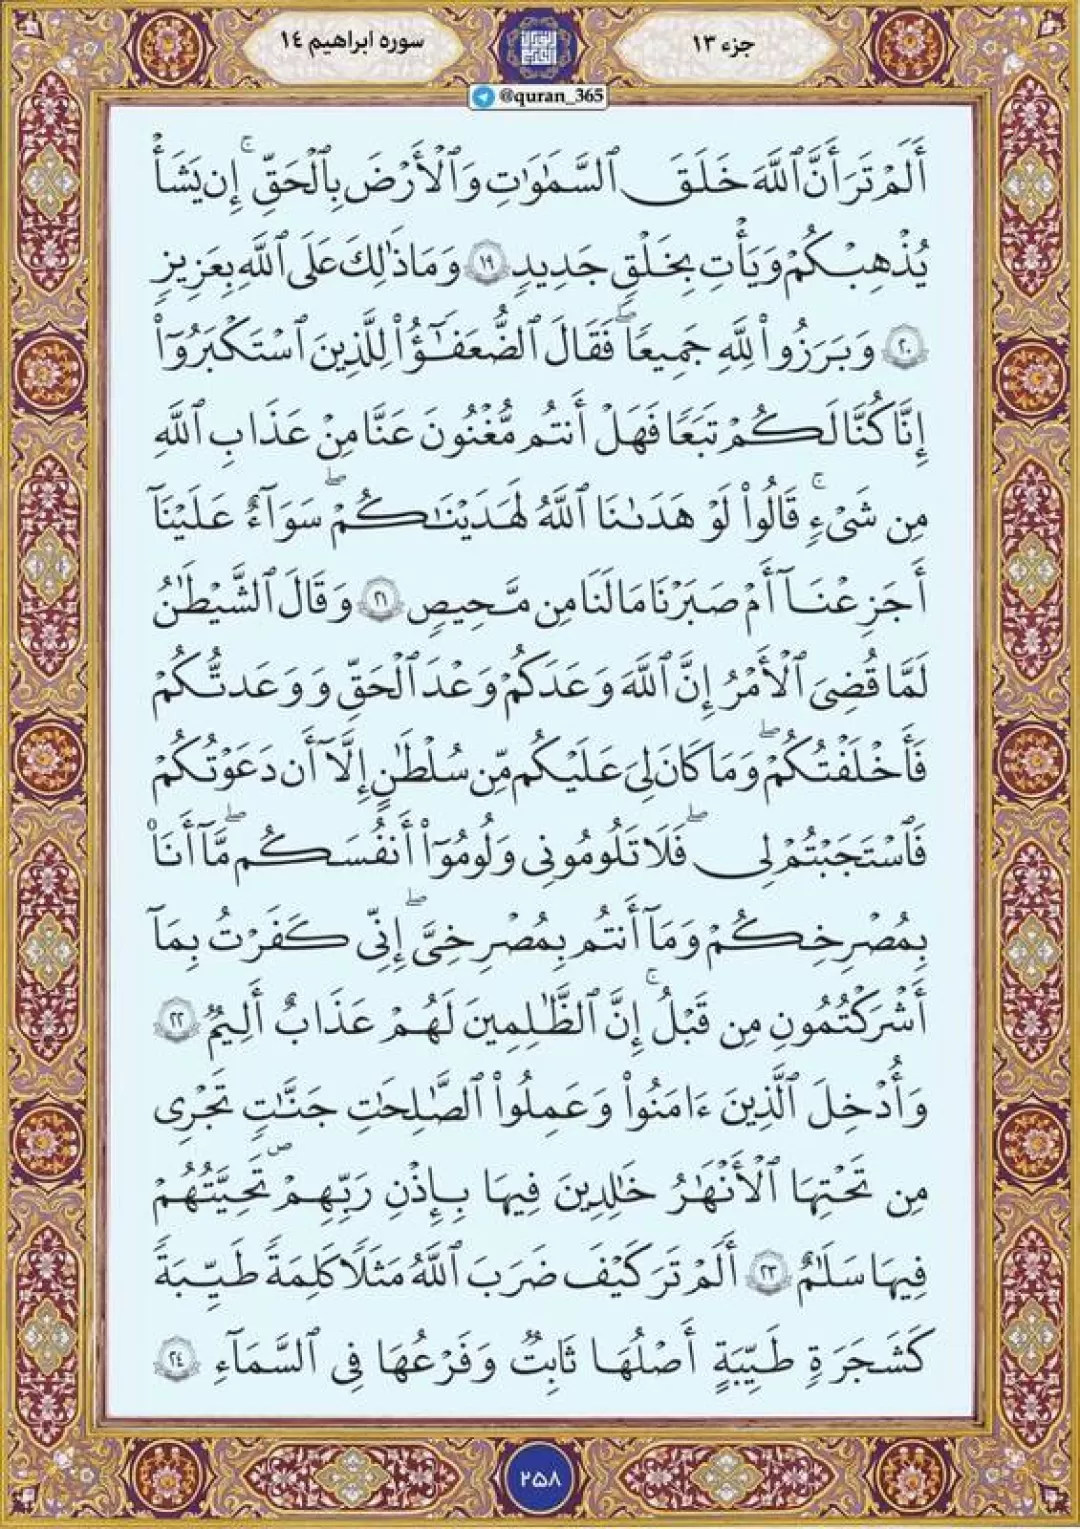 جزء ۱۳
سوره ابراهیم ۱۴
@quran_365
أَلَمْ تَرَ أَنَّ ٱللَّهَ خَلَقَ ٱلسَّمَٰوَٰتِ وَٱلْأَرْضَ بِٱلْحَقِّ ۚ إِن يَشَأْ
يُذْهِبْكُمْ وَيَأْتِ بِخَلْقٍ جَدِيدٍ ١٩ وَمَا ذَٰلِكَ عَلَى ٱللَّهِ بِعَزِيزٍ
٢٠ وَبَرَزُوا۟ لِلَّهِ جَمِيعًا ۖ فَقَالَ ٱلضُّعَفَـٰٓؤُا۟ لِلَّذِينَ ٱسْتَكْبَرُوٓا۟
إِنَّا كُنَّا لَكُمْ تَبَعًا فَهَلْ أَنتُم مُّغْنُونَ عَنَّا مِنْ عَذَابِ ٱللَّهِ
مِن شَىْءٍ ۚ قَالُوا۟ لَوْ هَدَىٰنَا ٱللَّهُ لَهَدَيْنَـٰكُمْ ۖ سَوَآءٌ عَلَيْنَآ
أَجَزِعْنَآ أَمْ صَبَرْنَا مَا لَنَا مِن مَّحِيصٍ ٢١ وَقَالَ ٱلشَّيْطَـٰنُ
لَمَّا قُضِىَ ٱلْأَمْرُ إِنَّ ٱللَّهَ وَعَدَكُمْ وَعْدَ ٱلْحَقِّ وَوَعَدتُّكُمْ
فَأَخْلَفْتُكُمْ ۖ وَمَا كَانَ لِىَ عَلَيْكُم مِّن سُلْطَـٰنٍ إِلَّآ أَن دَعَوْتُكُمْ
فَٱسْتَجَبْتُمْ لِى ۖ فَلَا تَلُومُونِى وَلُومُوٓا۟ أَنفُسَكُم ۖ مَّآ أَنَا۠
بِمُصْرِخِكُمْ وَمَآ أَنتُم بِمُصْرِخِىَّ ۖ إِنِّى كَفَرْتُ بِمَآ
أَشْرَكْتُمُونِ مِن قَبْلُ ۚ إِنَّ ٱلظَّـٰلِمِينَ لَهُمْ عَذَابٌ أَلِيمٌ ٢٢
وَأُدْخِلَ ٱلَّذِينَ ءَامَنُوا۟ وَعَمِلُوا۟ ٱلصَّـٰلِحَـٰتِ جَنَّـٰتٍ تَجْرِى
مِن تَحْتِهَا ٱلْأَنْهَـٰرُ خَـٰلِدِينَ فِيهَا بِإِذْنِ رَبِّهِمْ ۖ تَحِيَّتُهُمْ
فِيهَا سَلَـٰمٌ ٢٣ أَلَمْ تَرَ كَيْفَ ضَرَبَ ٱللَّهُ مَثَلًا كَلِمَةً طَيِّبَةً
كَشَجَرَةٍ طَيِّبَةٍ أَصْلُهَا ثَابِتٌ وَفَرْعُهَا فِى ٱلسَّمَآءِ ٢٤
۲۵۸